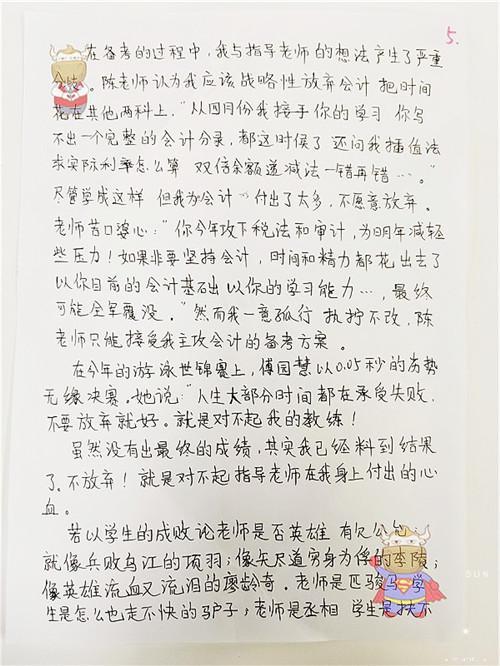 5.
在备考的过程中,我与指导老师的想法产生了严重
分歧。陈老师认为我应该战略性放弃会计 把时间
花在其他两科上,"从四月份我接手你的学习 你写
不出一个完整的会计分录,都这时候了 还问我插值法
求实际利率怎么算 双倍余额递减法一错再错…。"
尽管学成这样 但我为会计付出了太多,不愿意放弃。
老师苦口婆心:"你今年攻下税法和审计,为明年减轻
些压力!如果非要坚持会计,时间和精力都花出去了
以你目前的会计基础 以你的学习能力…,最终
可能全军覆没。"然而我一意孤行 执拗不改,陈
老师只能接受我主攻会计的备考方案。
在今年的游泳世锦赛上,傅园慧以0.05秒的劣势
无缘决赛。她说:"人生大部分时间都在承受失败,
不要放弃就好。就是对不起我的教练!
虽然没有出最终的成绩,其实我已经料到结果
了。不放弃!就是对不起指导老师在我身上付出的心
血。
若以学生的成败论老师是否英雄 有欠公
就像兵败乌江的项羽;像矢尽道穷身为俘的李陵;
像英雄流血又流泪的廖龄奇。老师是匹骏马 学
生是怎么也走不快的驴子;老师是丞相 学生是扶不
SUN